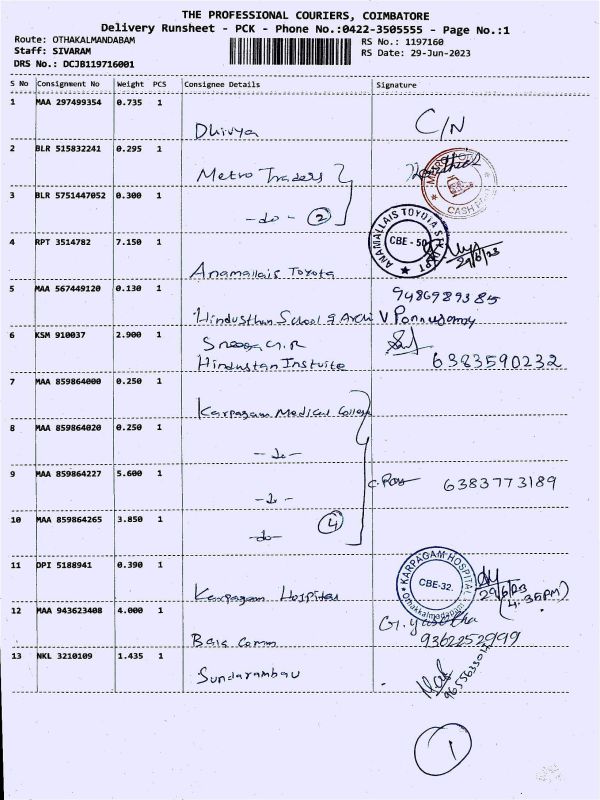 THE PROFESSIONAL COURIERS, COIMBATORE
Delivery Runsheet - PCK - Phone No.:0422-3505555 - Page No.:1
Route: OTHAKALMANDABAM
Staff: SIVARAM
DRS No.: DCJB119716001
RS No.: 1197160
RS Date: 29-Jun-2023
S No Consignment No Weight PCS Consignee Details Signature
1 MAA 297499354 0.735 1
Dhivya C/N
2 BLR 515832241 0.295 1
Metro Traders
3 BLR 5751447052 0.300 1
-do- 2
CASH
ANAMALLAIS TOYOTA
CBE - 50
4 RPT 3514782 7.150 1
29/6/23
Anamallais Toyota
5 MAA 567449120 0.130 1
9486989385
Hindusthan School of Archi V Ponnusamy
6 KSM 910037 2.900 1
Hindustan Instuite 6383590232
7 MAA 859864000 0.250 1
Karpagam Medical College
8 MAA 859864020 0.250 1
-do-
9 MAA 859864227 5.600 1
6383773189
-do-
10 MAA 859864265 3.850 1
-do- 4
11 OPI 5188941 0.390 1
KARPAGAM HOSPITAL
CBE-32
Othakkalmandapam
29/6/23
(4.35PM)
Karpagam Hospital
12 MAA 943623408 4.000 1
G. Yasotha
9362252999
13 NKL 3210109 1.435 1
Sundarambau
1